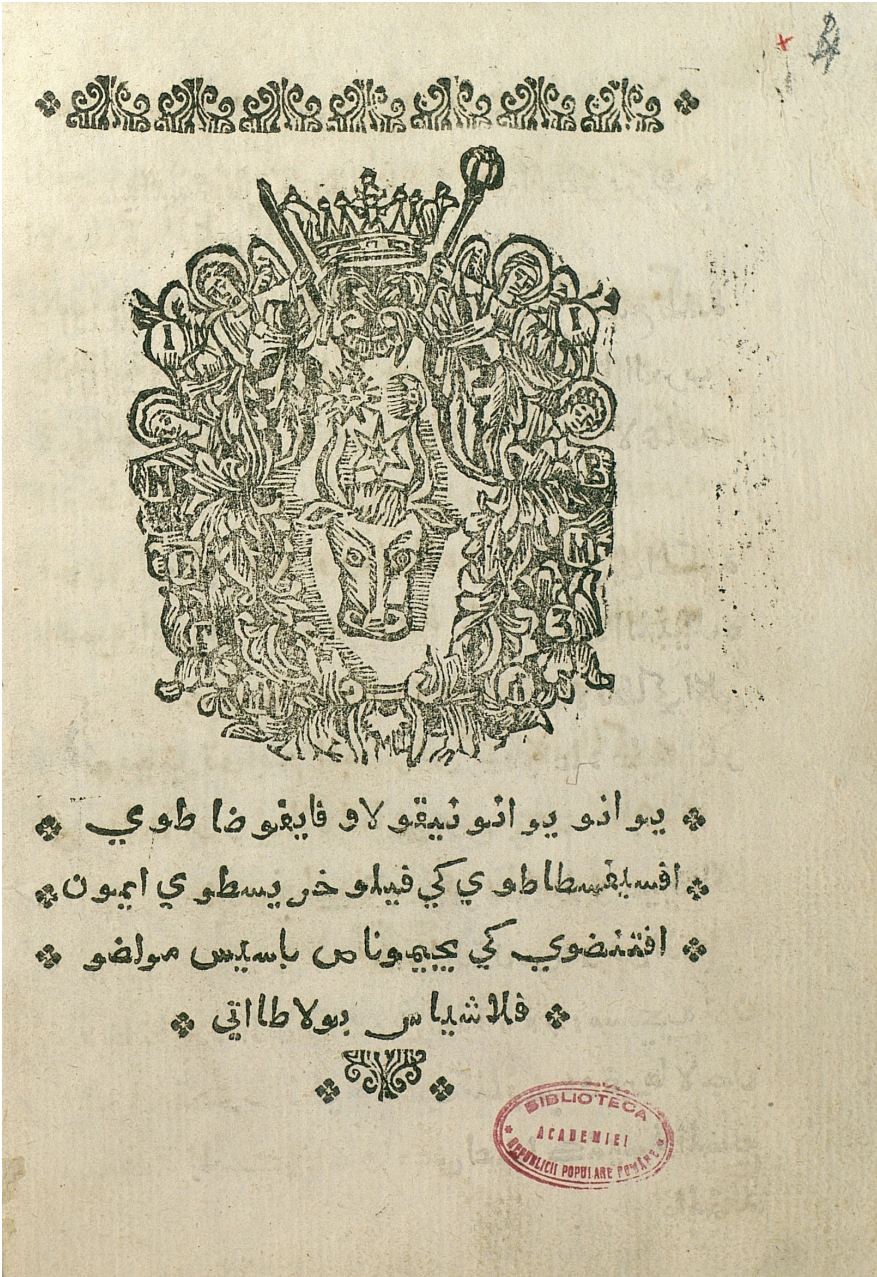 I I
N
B M
Г З
يوانو يوانو نيقولاو فايفوضا طوي
افسيفسطاطوي كي فيلو خريسطوي ايمون
افثنضوي كي يجيموناص باسيس مولضو
فلاشياس بولاطااتي
BIBLIOTECA
ACADEMIEI
REPUBLICII POPULARE ROMÂNE